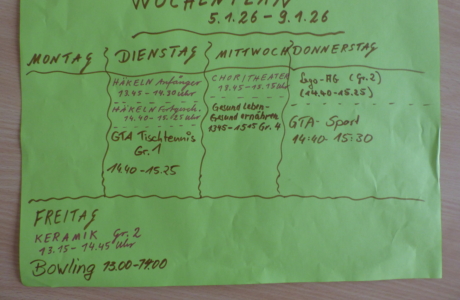 WOCHENPLAN
5.1.26 - 9.1.26
MONTAG
DIENSTAG
HÄKELN Anfänger
13.45 - 14.30 Uhr
HÄKELN Fortgesch.
14.40 - 15.25 Uhr
GTA Tischtennis
Gr. 1
14.40 - 15.25
MITTWOCH
CHOR/THEATER
13.45 - 15.15 Uhr
Gesund leben -
Gesund ernähren
1345 - 1515 Gr. 4
DONNERSTAG
(Gr. 2)
(14.40 - 15.25)
GTA - Sport
14:40 - 15:30
FREITAG
KERAMIK Gr. 2
13.15 - 14.45 Uhr
Bowling